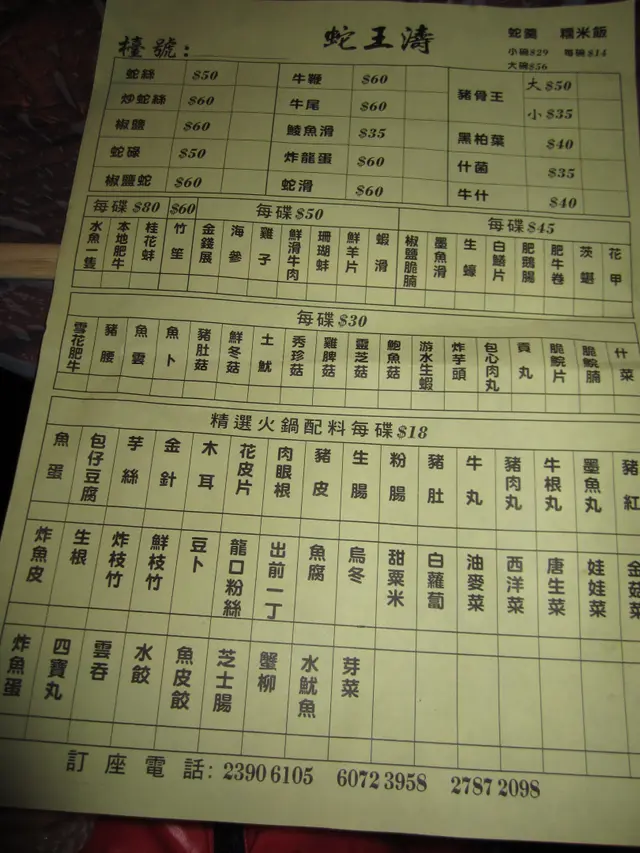 檯號:
蛇王濤
蛇羹 糯米飯
小碗$29 每碗$14
大碗$56
蛇絲 $50 牛鞭 $60 豬骨王 大$50
炒蛇絲 $60 牛尾 $60 小$35
椒鹽 $60 鯪魚滑 $35 黑柏葉 $40
蛇碌 $50 炸龍蛋 $60 什菌 $35
椒鹽蛇 $60 蛇滑 $60 牛什 $40
每碟$80 $60 每碟$50 每碟$45
水魚一隻 本地肥牛 桂花蚌 竹笙 金錢展 海參 雞子 鮮滑牛肉 珊瑚蚌 鮮羊片 蝦滑 椒鹽脆腩 墨魚滑 生蠔 白鱔片 肥鵝腸 肥牛卷 茨蜞 花甲
每碟$30
雪花肥牛 豬腰 魚雲 魚卜 豬肚菇 鮮冬菇 土魷 秀珍菇 雞脾菇 靈芝菇 鮑魚菇 游水生蝦 炸芋頭 包心肉丸 貢丸 脆鯇片 脆鯇腩 什菜
精選火鍋配料每碟$18
魚蛋 包仔豆腐 芋絲 金針 木耳 花皮片 肉眼根 豬皮 生腸 粉腸 豬肚 牛丸 豬肉丸 牛根丸 墨魚丸 豬紅
炸魚皮 生根 炸枝竹 鮮枝竹 豆卜 龍口粉絲 出前一丁 魚腐 烏冬 甜粟米 白蘿蔔 油麥菜 西洋菜 唐生菜 娃娃菜 金菇菜
炸魚蛋 四寶丸 雲吞 水餃 魚皮餃 芝士腸 蟹柳 水魷魚 芽菜
訂座電話: 2390 6105 6072 3958 2787 2098